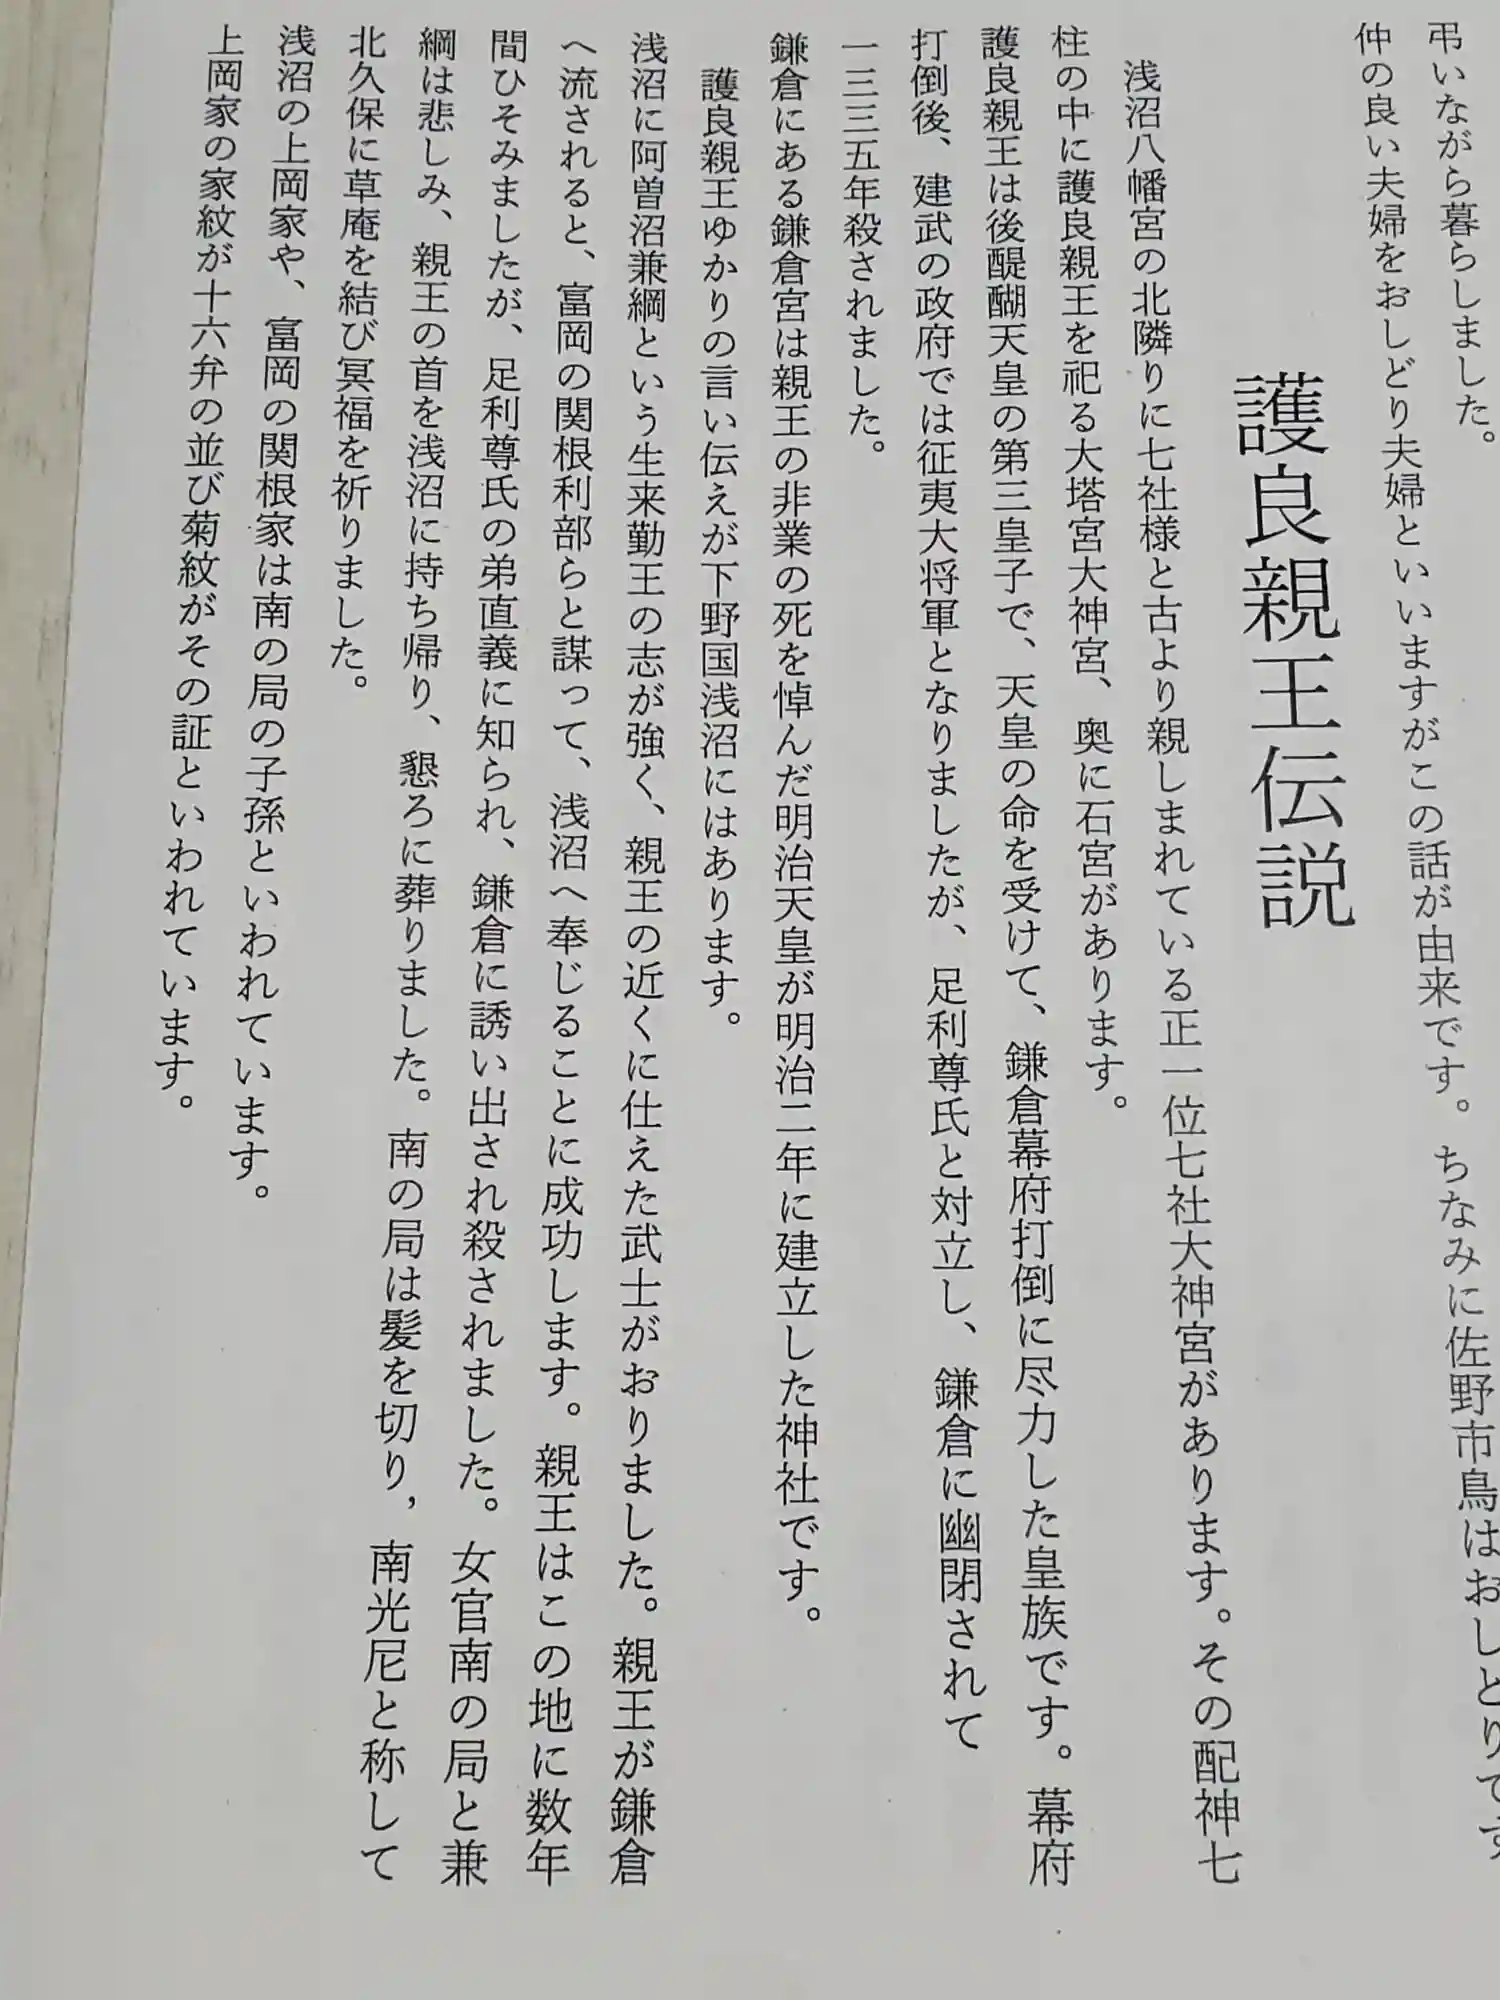 弔いながら暮らしました。
仲の良い夫婦をおしどり夫婦といいますがこの話が由来です。ちなみに佐野市鳥はおしどりです
護良親王伝説
浅沼八幡宮の北隣りに七社様と古より親しまれている正一位七社大神宮があります。その配神七
柱の中に護良親王を祀る大塔宮大神宮、奥に石宮があります。
護良親王は後醍醐天皇の第三皇子で、天皇の命を受けて、鎌倉幕府打倒に尽力した皇族です。幕府
打倒後、建武の政府では征夷大将軍となりましたが、足利尊氏と対立し、鎌倉に幽閉されて
一三三五年殺されました。
鎌倉にある鎌倉宮は親王の非業の死を悼んだ明治天皇が明治二年に建立した神社です。
護良親王ゆかりの言い伝えが下野国浅沼にはあります。
浅沼に阿曽沼兼綱という生来勤王の志が強く、親王の近くに仕えた武士がおりました。親王が鎌倉
へ流されると、富岡の関根利部らと謀って、浅沼へ奉じることに成功します。親王はこの地に数年
間ひそみましたが、足利尊氏の弟直義に知られ、鎌倉に誘い出され殺されました。女官南の局と兼
綱は悲しみ、親王の首を浅沼に持ち帰り、懇ろに葬りました。南の局は髪を切り，南光尼と称して
北久保に草庵を結び冥福を祈りました。
浅沼の上岡家や、富岡の関根家は南の局の子孫といわれています。
上岡家の家紋が十六弁の並び菊紋がその証といわれています。